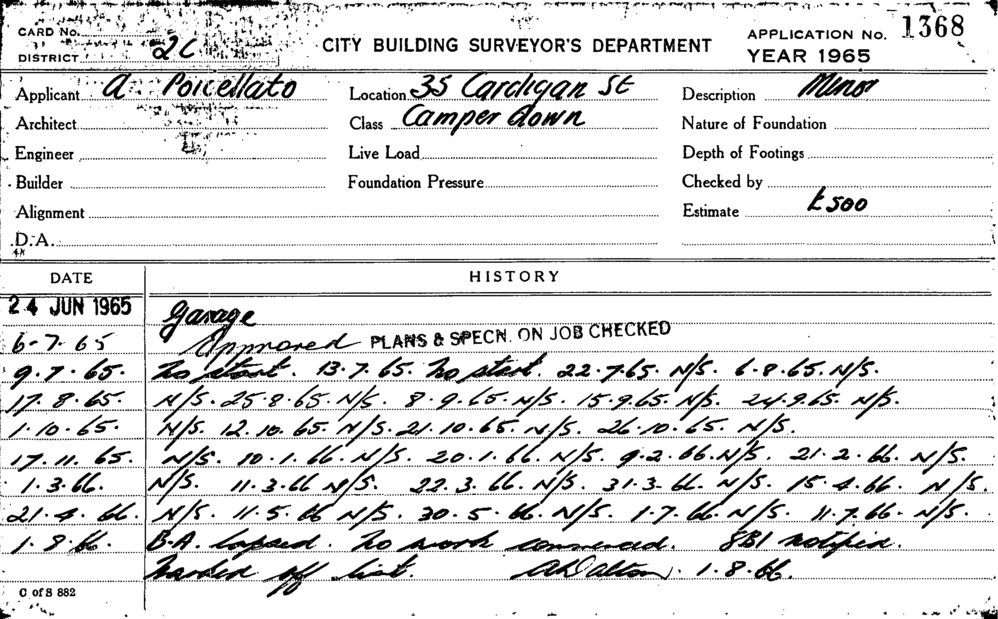 CARD No.
DISTRICT 2C
CITY BUILDING SURVEYOR'S DEPARTMENT
APPLICATION No. 1368
YEAR 1965
Applicant A. Porcellato Location 35 Cardigan St Description Minor
Architect Class Camperdown Nature of Foundation
Engineer Live Load Depth of Footings
Builder Foundation Pressure Checked by
Alignment Estimate £500
D.A.
DATE HISTORY
24 JUN 1965 Garage
6-7-65 Approved PLANS & SPECN. ON JOB CHECKED
9.7.65. No start. 13.7.65. No start. 22.7.65. N/S. 6.8.65. N/S.
17.8.65. N/S. 25.8.65. N/S. 8.9.65. N/S. 15.9.65. N/S. 24.9.65. N/S.
1.10.65. N/S. 12.10.65. N/S. 21.10.65. N/S. 26.10.65. N/S.
17.11.65. N/S. 10.1.66. N/S. 20.1.66. N/S. 9.2.66. N/S. 21.2.66. N/S.
1.3.66. N/S. 11.3.66 N/S. 22.3.66. N/S. 31.3.66. N/S. 15.4.66. N/S.
21.4.66. N/S. 11.5.66 N/S. 30.5.66. N/S. 1.7.66. N/S. 11.7.66. N/S.
1.8.66. B.A. lapsed. No work commenced. SBI notified.
Marked off list. A Dalton. 1.8.66.
C of S 882